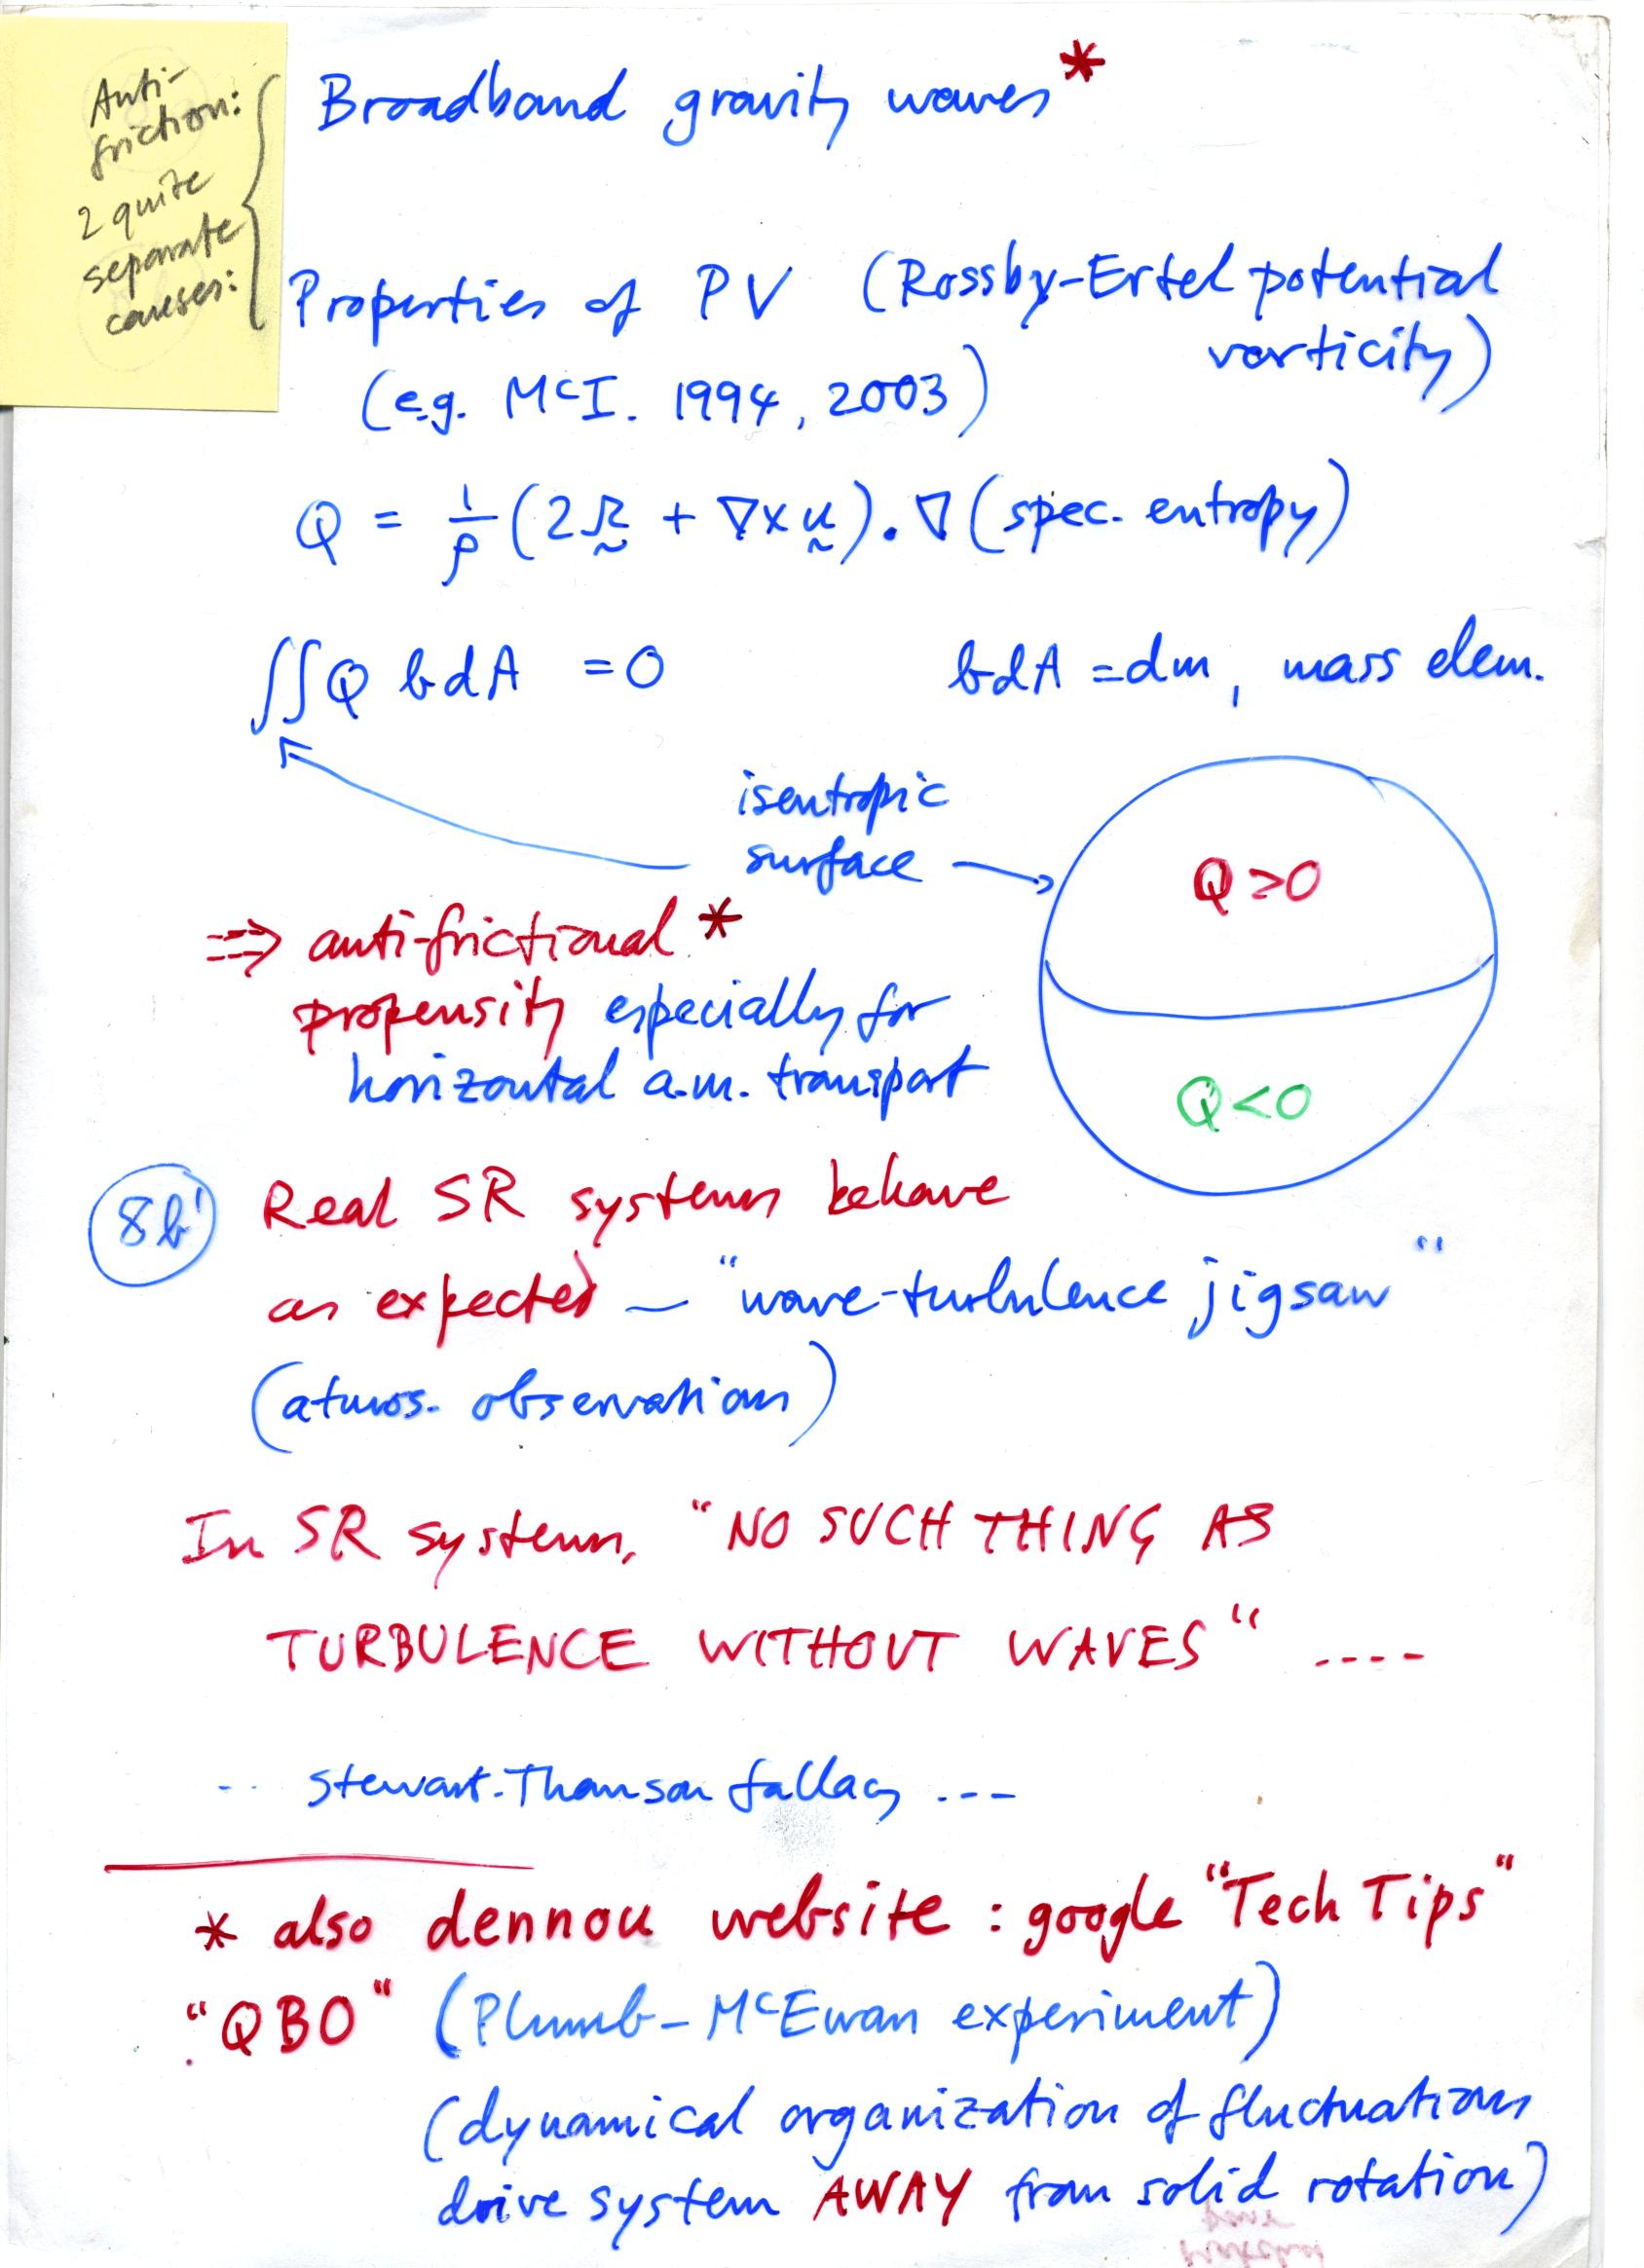 Anti-
friction:
2 quite
separate
causes:
Broadband gravity waves *
Properties of PV (Rossby-Ertel potential
vorticity)
(e.g. McI. 1994, 2003)
Q = 1/ρ (2Ω + ∇×u) . ∇ (spec. entropy)
∬ Q b dA = 0 b dA = dm, mass elem.
isentropic
surface
Q >0
Q <0
⇒ anti-frictional *
propensity especially for
horizontal a.m. transport
8b' Real SR systems behave
as expected — "wave-turbulence jigsaw"
(atmos. observations)
In SR systems, "NO SUCH THING AS
TURBULENCE WITHOUT WAVES" ----
-- Stewart-Thomson fallacy ---
* also dennou website : google "Tech Tips"
"QBO" (Plumb-McEwan experiment)
(dynamical organization of fluctuations
drive system AWAY from solid rotation)